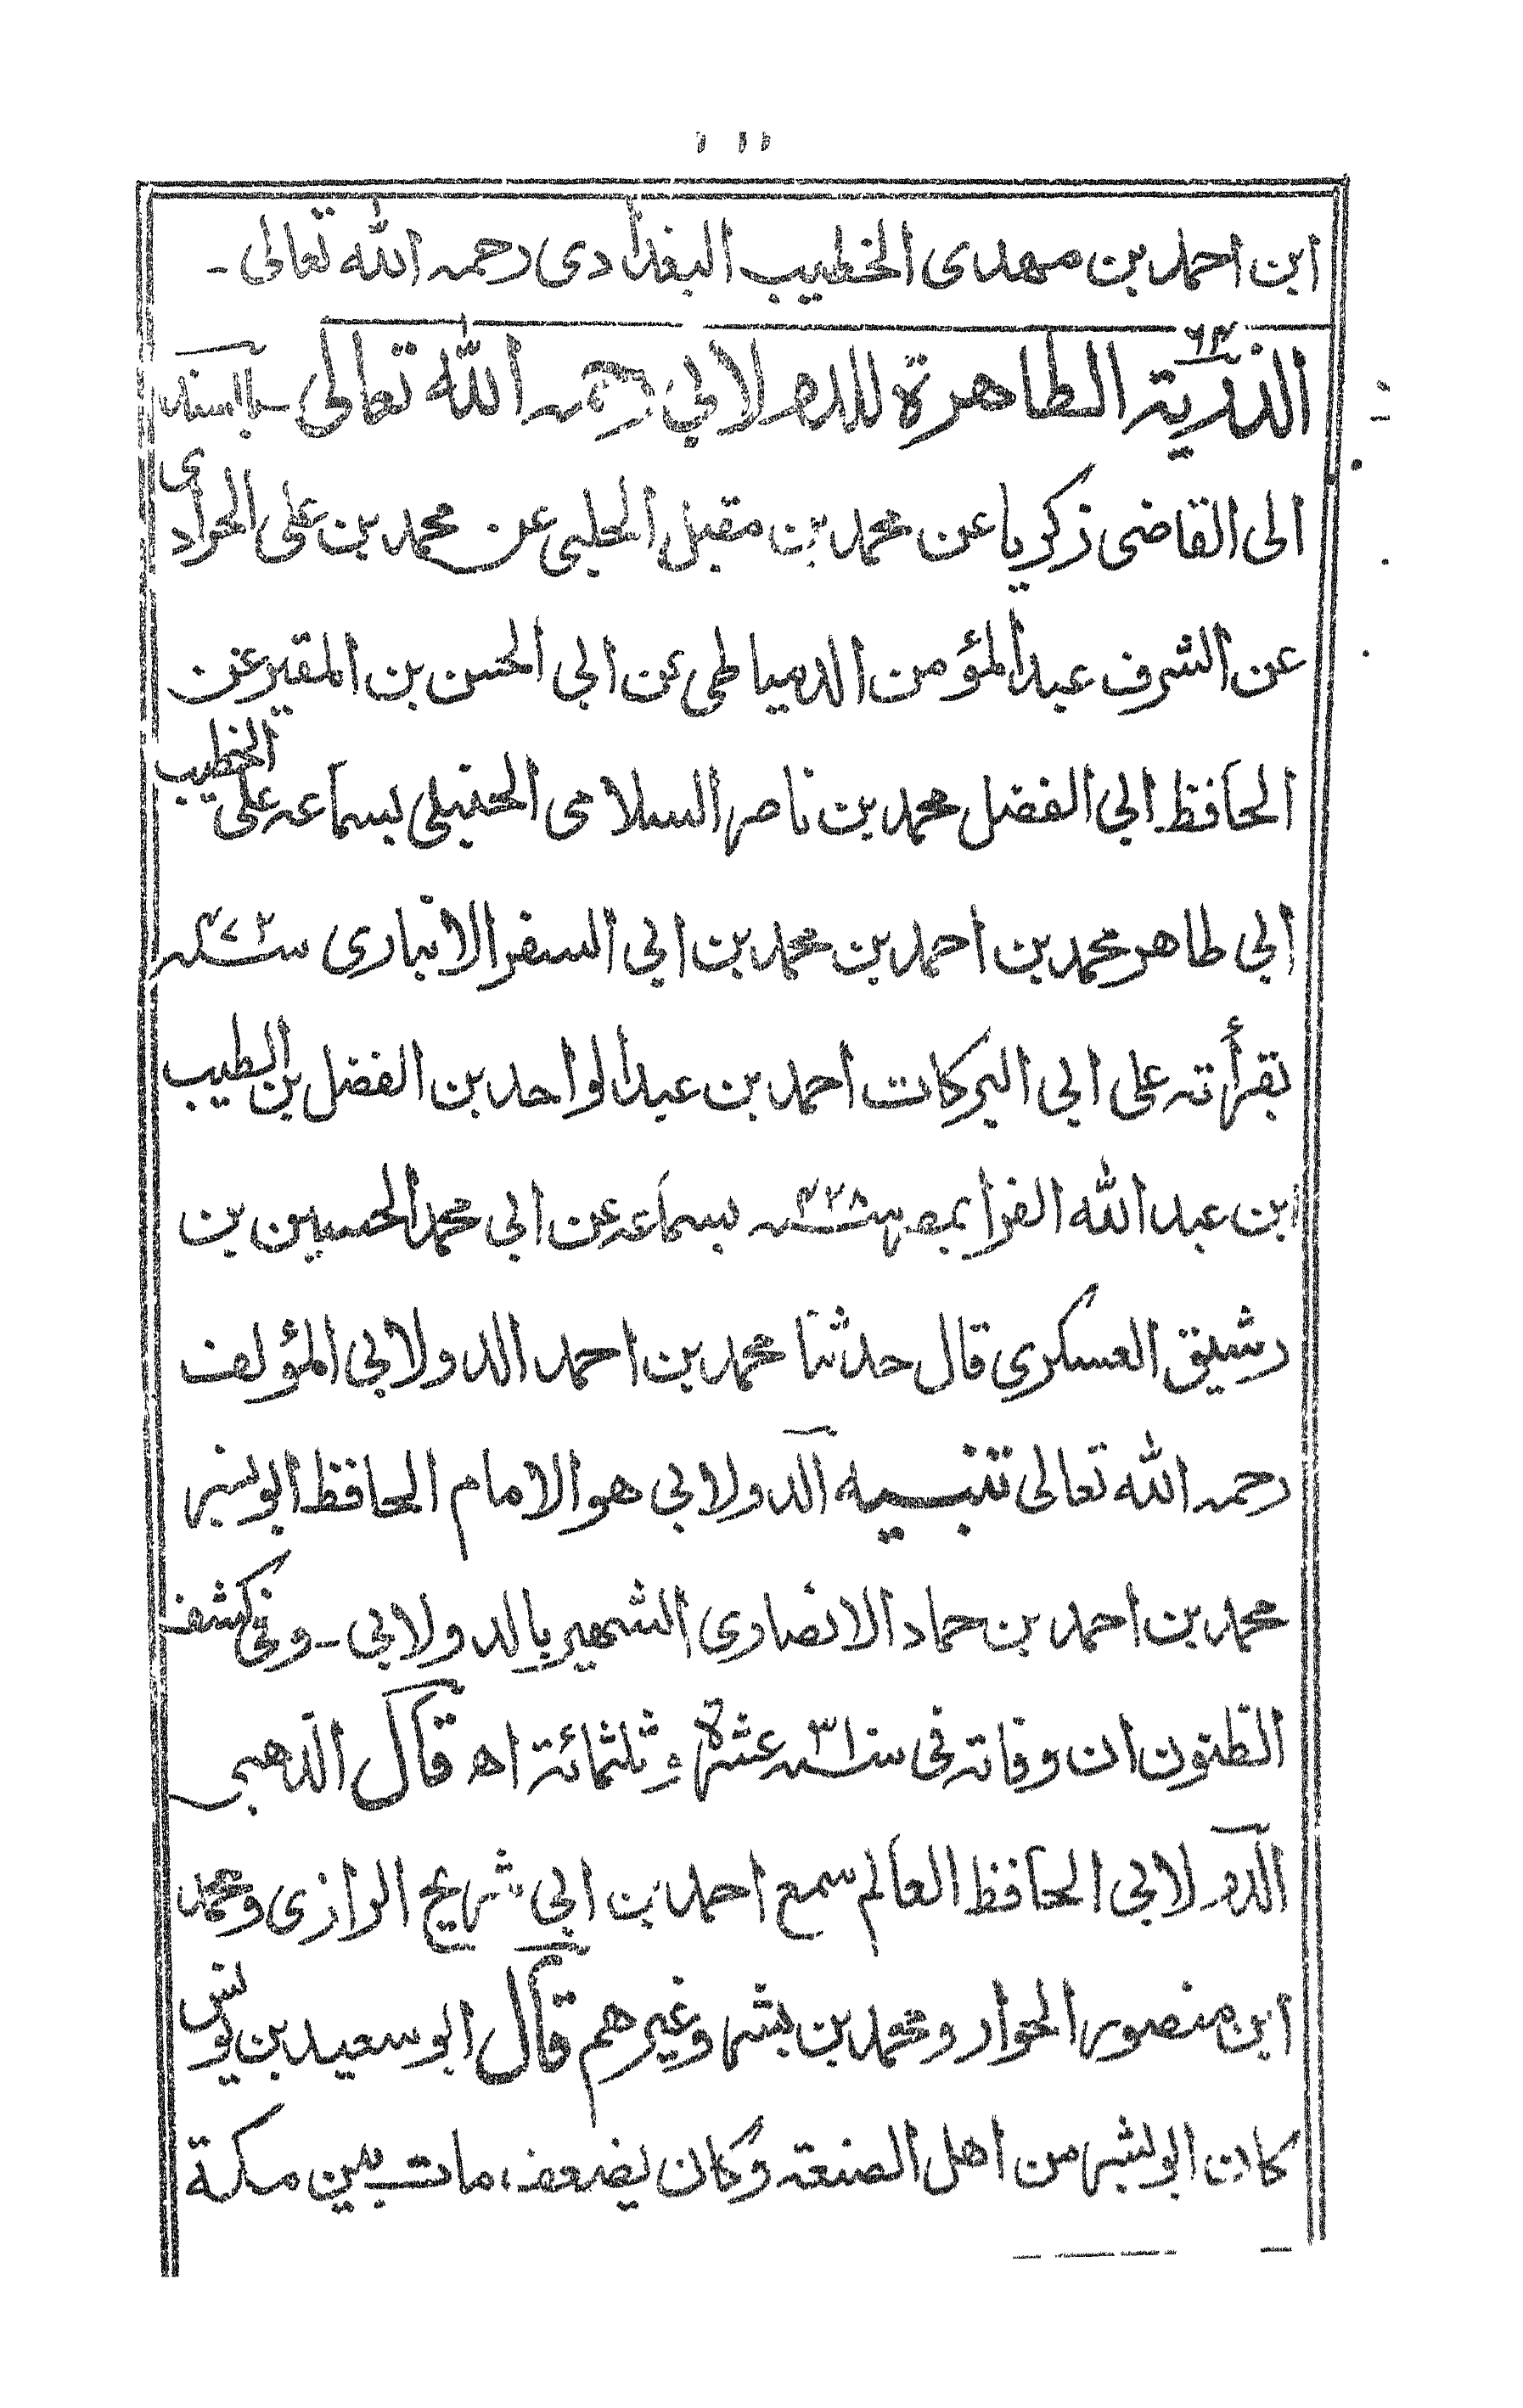 ابن احمد بن مهدى الخطيب البغدادى رحمه الله تعالى -
٦٣
الذرية الطاهرة للدولابي رحمه الله تعالى - بالسند
الى القاضى زكريا عن محمد بن مقبل الحلبى عن محمد بن على الحراوى
عن الشرف عبد المؤمن الدمياطى عن ابي الحسن بن المقير عن
الحافظ ابي الفضل محمد بن ناصر السلامى الحنبلى بسماعه على الخطيب
ابي طاهر محمد بن احمد بن محمد بن ابي السفر الانبارى سنه ٤٧٢
بقرأته على ابي البركات احمد بن عبد الواحد بن الفضل بن الطيب
ابن عبد الله الفرا بمصر سنه ٤٢٨ بسماعه عن ابي محمد الحسين بن
رشيق العسكرى قال حدثنا محمد بن احمد الدولابي المؤلف
رحمه الله تعالى تنبيه الدولابي هو الامام الحافظ ابو بشر
محمد بن احمد بن حماد الانصارى الشهير بالدولابي - وفى كشف
الظنون ان وفاته فى سنه ٣١١ عشرة و ثلثمائة اه قال الذهبى
الدولابي الحافظ العالم سمع احمد بن ابي شريح الرازى ومحمد
ابن منصور الجواز ومحمد بن بشر وغيرهم قال ابو سعيد بن يونس
كان ابو بشر من اهل الصنعة وكان يضعف، مات بين مكة